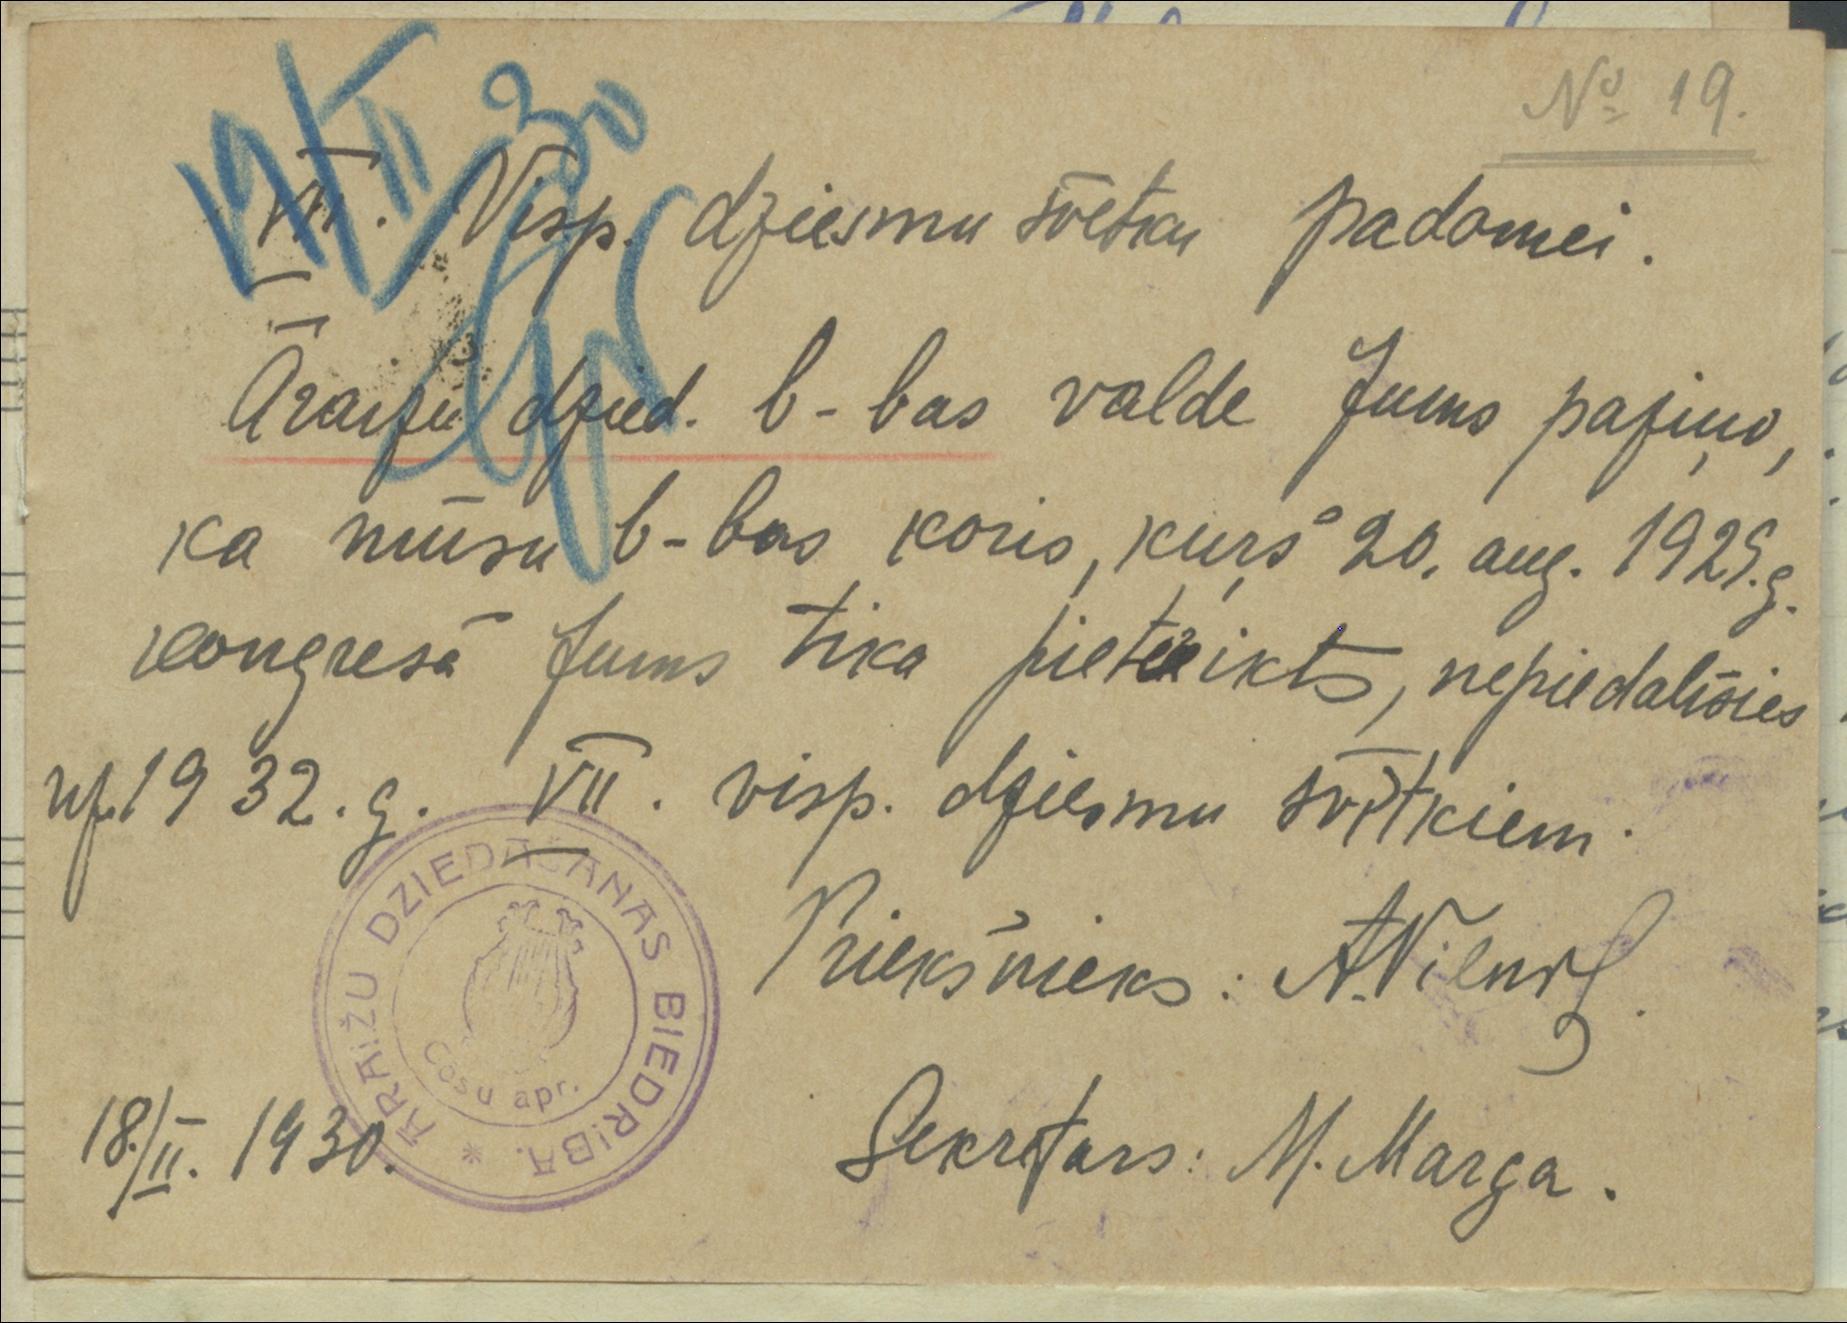 № 19.
VII. Visp. dziesmu svētku padomei.
Āraižu dzied. b-bas valde Jums paziņo,
ka mūsu b-bas koris, kuŗš 20. aug. 1929. g.
kongresā Jums tika pieteikts, nepiedalīsies
uz 1932. g. VII. visp. dziesmu svētkiem.
Priekšnieks: A.
ĀRAIŽU DZIEDĀŠANAS BIEDRIBA.
Cēsu apr.
18./II. 1930.
Sekretars: M. Marga.